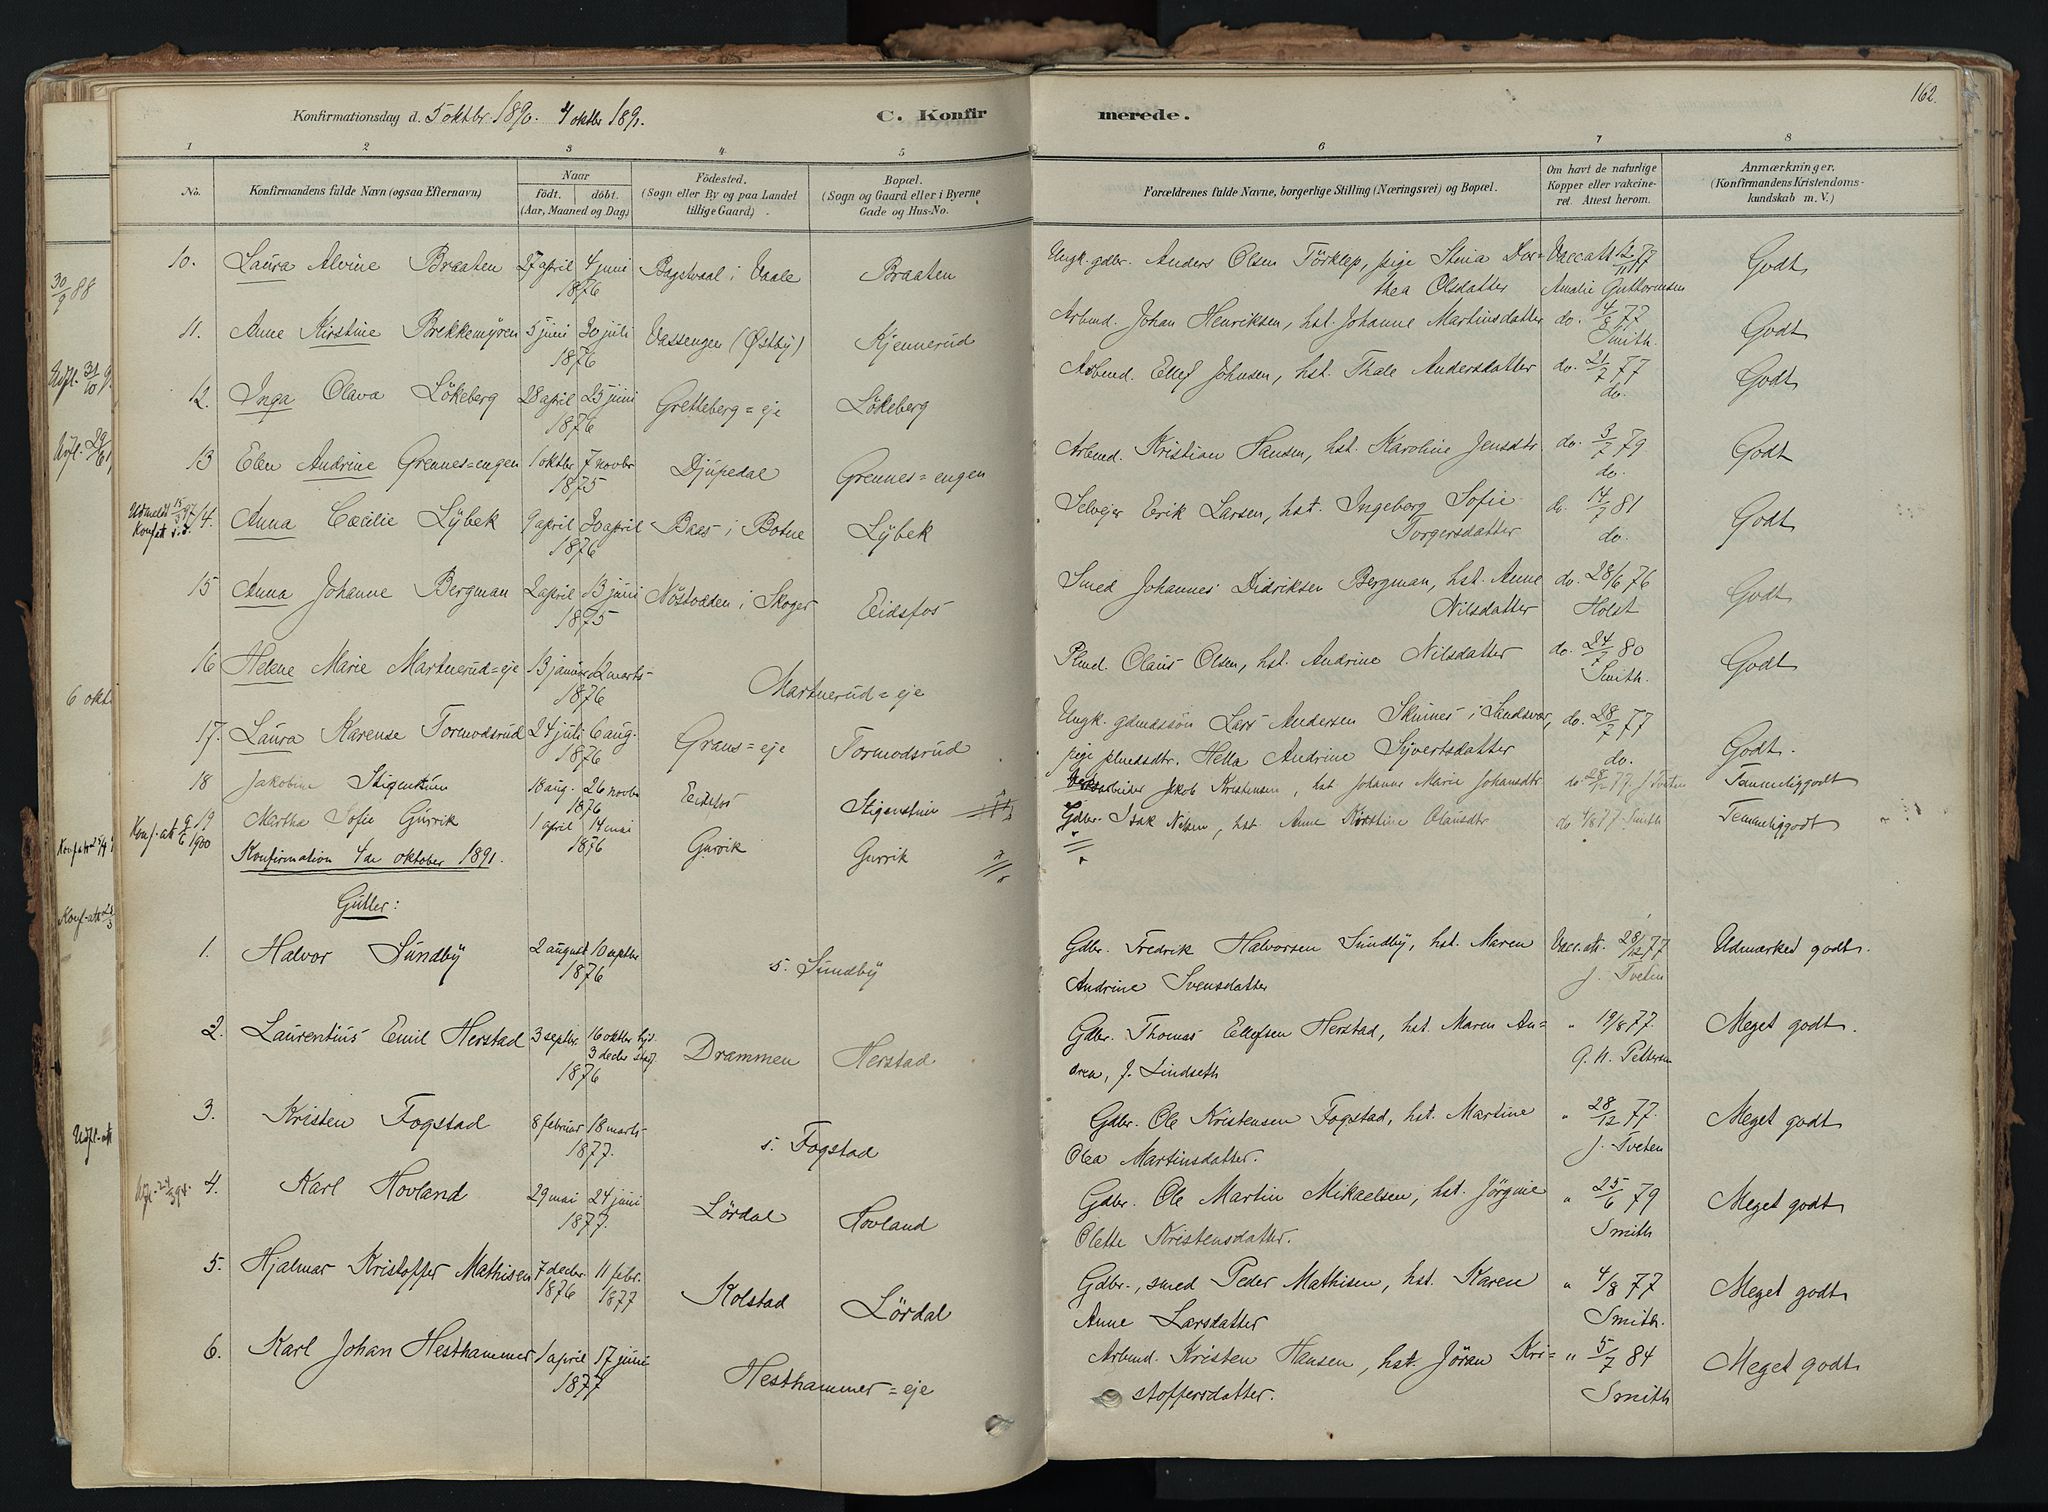 162.
Konfirmationsdag d. 5 oktbr. 1890. 4 oktbr 1891.
C. Konfirmerede.
1 2 3 4 5 6 7 8
No. Konfirmandens fulde Navn (ogsaa Efternavn) Naar Født. døbt. (Aar, Maaned og Dag) Fødested. (Sogn eller By og paa Landet tillige Gaard) Bopæl. (Sogn og Gaard eller i Byerne Gade og Hus-No. Forældrenes fulde Navne, borgerlige Stilling (Næringsvei) og Bopæl. Om havt de naturlige Kopper eller vakcineret. Attest herom. Anmærkninger. (Konfirmandens Kristendomskundskab m. V.)
10. Laura Alvine Braaten 27 april 4 juni 1876 Bagstvaal i Vaale Braaten Ungk. gdbr. Anders Olsen Törklep, pige Stina Dor=
thea Olsdatter Vaccatt 12/11 77 Amalie Guttormsen Godt
11. Anne Kirstine Brekkemyren 5 juni 30 juli 1876 Vassengen (Østby) Kjennerud Arbmd. Johan Henriksen, hst. Johanne Martinsdatter do. 4/8 77 Smith. Godt
12. Inga Olava Lökeberg 28 april 25 juni 1876 Gretteberg=eje Lökeberg Arbmd. Ellef Johnsen, hst. Thale Andersdatter do. 21/7 77 do. Godt
13 Elen Andrine Grennes=engen 1 oktbr 7 novbr 1875 Djupedal Grennes=engen Arbmd. Kristian Hansen, hst. Karoline Jensdtr. do. 3/7 79 do. Godt
Udmeldt 15/3 97 Konf.att s.d. 14. Anna Cæcilie Lybek 9 april 30 april 1876 Baas i Botne Lybek Selvejer Erik Larsen, hst. Ingeborg Sofie
Torgersdatter do. 14/7 81 do. Godt
15 Anna Johanne Bergman 2 april 13 juni 1875 Nöstvedten i Skoger Eidsfos Smed Johannes Didriksen Bergman, hst. Anne
Nilsdatter do. 28/6 76 Holst Godt
16 Helene Marie Martnerud=eje 13 januar 12 marts 1876 Martnerud=eje Plmd. Olaus Olsen, hst. Andrine Nilsdatter do. 24/7 80 Smith. Godt
17. Laura Karense Tormodsrud 24 juli 6 aug. 1876 Grans=eje Tormodsrud Ungk. gdmdssön Lars Andersen Skinnes i Sandsvær,
pige plmdsdtr. Hella Andrine Syvertsdatter do. 28/7 77 do. Godt.
18 Jakobine Stigenstuen 18 aug. 26 novbr 1876 Eidsfos Stigenstuen Jakob Kristensen, hst. Johanne Marie Johansdtr do 28/12 77. J. Tveten Temmeliggodt
Konf.att 9/6 1900 19 Martha Sofie Gurrik 1 april 14 mai 1876 Gurrik Gurrik Gdbr. Isak Nilsen, hst. Anne Kirstine Olausdtr do 4/8 77. Smith Temmeliggodt
Konfirmation 4de oktober 1891.
Gutter:
1. Halvor Sundby 2 august 10 septbr 1876 s. Sundby Gdbr. Fredrik Halvorsen Sundby, hst. Maren
Andrine Svensdatter Vacc.att. 28/12 77 J. Tveten Udmærked godt.
2. Laurentius Emil Herstad 3 septbr. 16 oktbr hjd. 3 decbr stadf. 1876 Drammen Herstad Gdbr. Thomas Ellefsen Herstad, hst. Maren An=
drea, f. Lindseth " 19/8 77. G. N. Pettersen Meget godt.
3. Kristen Fogstad 8 februar 18 marts 1877. s. Fogstad Gdbr. Ole Kristensen Fogstad, hst. Martine
Olea Martinsdatter. " 28/12 77. J. Tveten Meget godt
4. Karl Hovland 29 mai 24 juni 1877. Lördal Hovland Gdbr. Ole Martin Mikaelsen, hst. Jörgine
Olette Kristensdatter. " 25/6 79 Smith Meget godt
5. Hjalmar Kristoffer Mathisen 7 decbr. 1876 11 febr. 1877 Kolstad Lördal Gdbr., smed Peder Mathisen, hst. Karen
Anne Larsdatter " 4/8 77 Smith. Meget godt
6. Karl Johan Hesthammer 1 april 17 juni 1877 Hesthammer=eje Arbmd. Kristen Hansen, hst. Jöran Kri=
stoffersdatter. " 5/7 84 Smith Meget godt